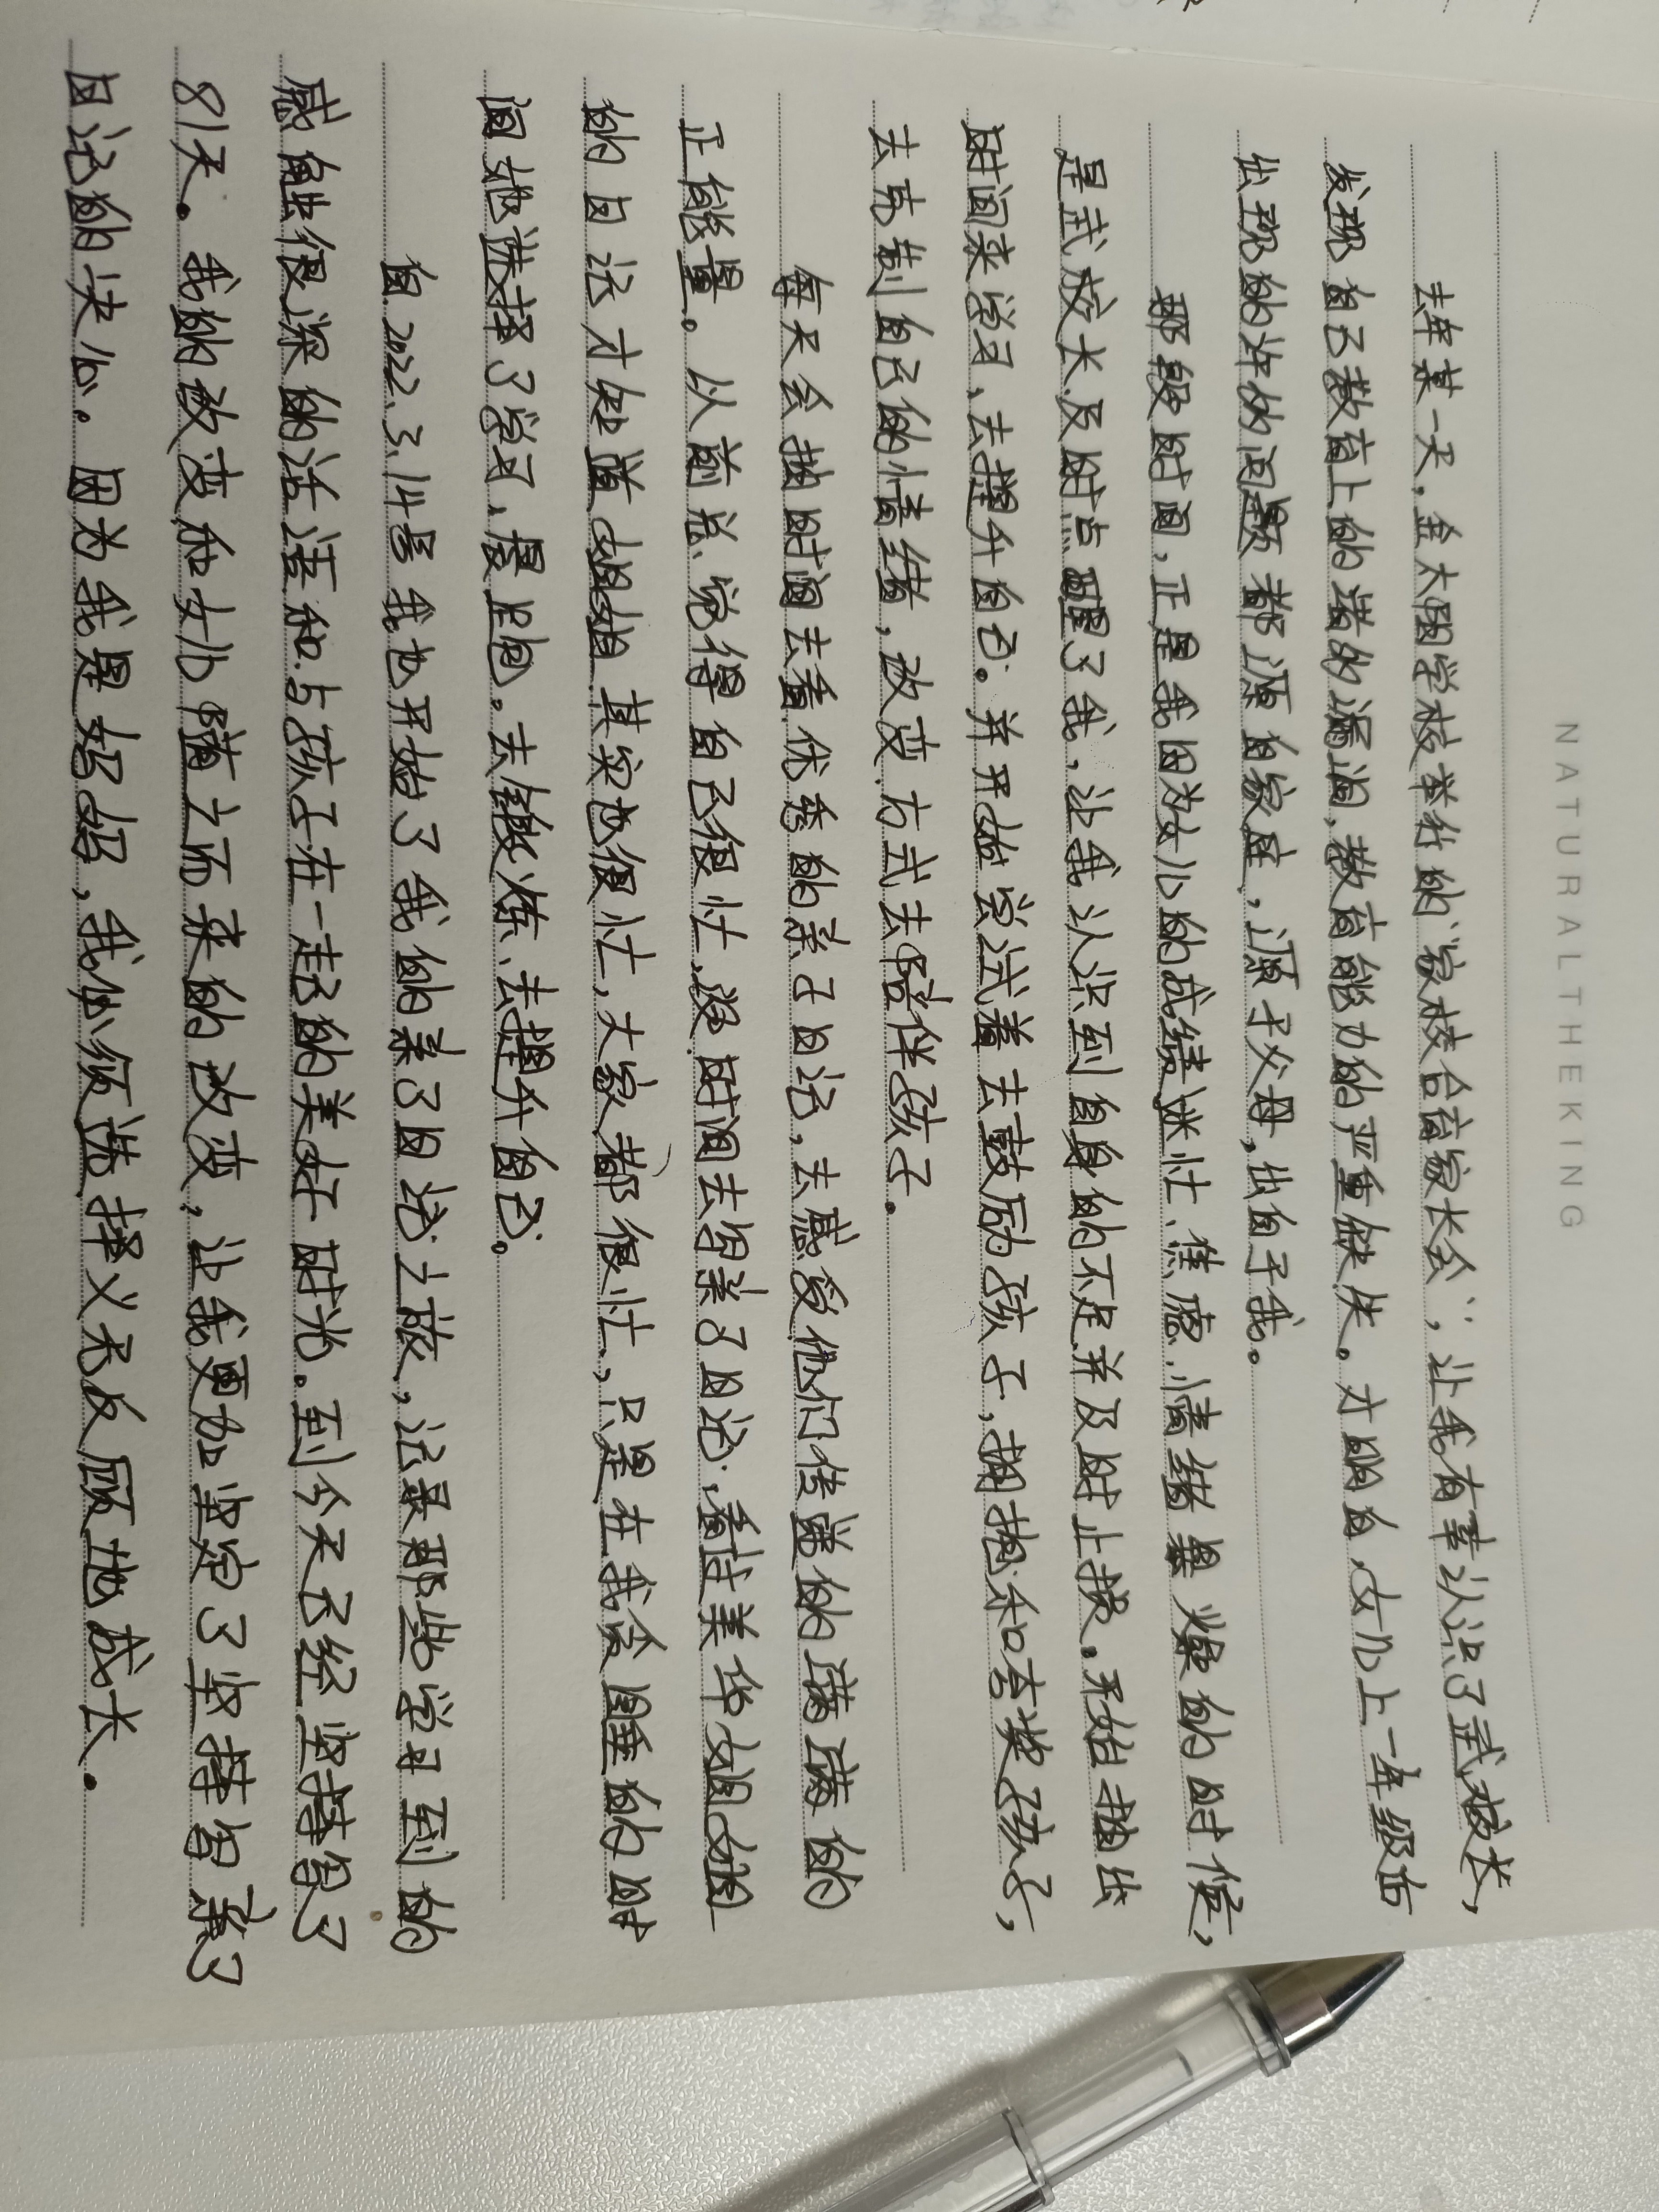 NATURALTHEKING
去年某一天,金太阳学校举行的“家校合育家长会”,让我有幸认识了武校长,
发现自己教育上的诸多漏洞,教育能力的严重缺失。才明白,女儿上一年级后
出现的许多问题都源自家庭,源于父母,出自于我。
那段时间,正是我因为女儿的成绩迷忙、焦虑、情绪暴燥的时候,
是武校长及时点醒了我,让我认识到自身的不足并及时止损。开始抽出
时间来学习,去提升自己。并开始尝试着去鼓励孩子,拥抱和夸奖孩子,
去克制自己的情绪,改变方式去陪伴孩子。
每天会抽时间去看优秀的亲子日记,去感受他们传递的满满的
正能量。从前总觉得自己很忙,没时间去写亲子日记,看过美华姐姐
的日记才知道姐姐其实也很忙,大家都很忙,只是在我贪睡的时
间她选择了学习,晨跑。去锻炼、去提升自己。
自2022.3.14号我也开始了我的亲子日记之旅,记录那些学习到的
感触很深的话语和与孩子在一起的美好时光。到今天已经坚持写了
81天。我的改变和女儿随之而来的改变,让我更加坚定了坚持写亲子
日记的决心。因为我是妈妈,我必须选择义无反顾地成长。